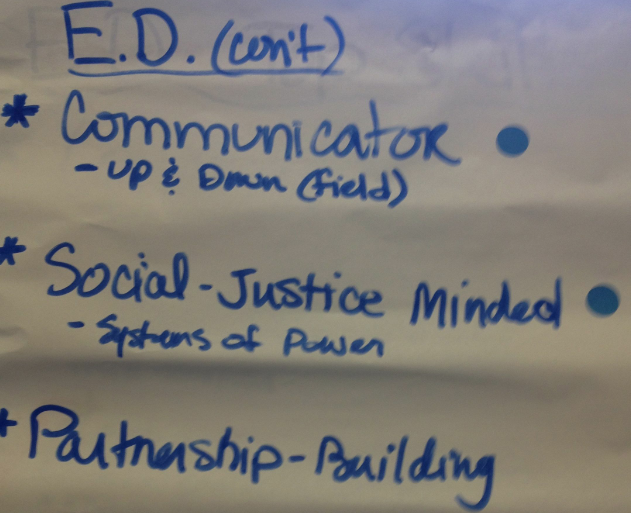 E.D. (con't)
* Communicator
- up & Down (field)
* Social-Justice Minded
- Systems of Power
* Partnership-Building